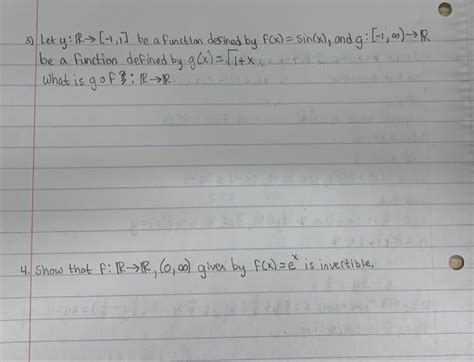 3) Let y: ℝ→[-1,1] be a function defined by f(x) = sin(x), and g: [-1,∞)→ℝ
be a function defined by g(x) = √1+x
What is g∘f : ℝ→ℝ
4. Show that f: ℝ→ℝ, (0,∞) given by f(x) = eˣ is invertible.